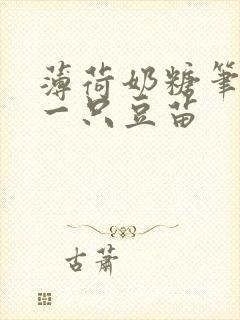 薄荷奶糖笔
一只豆苗
古萧